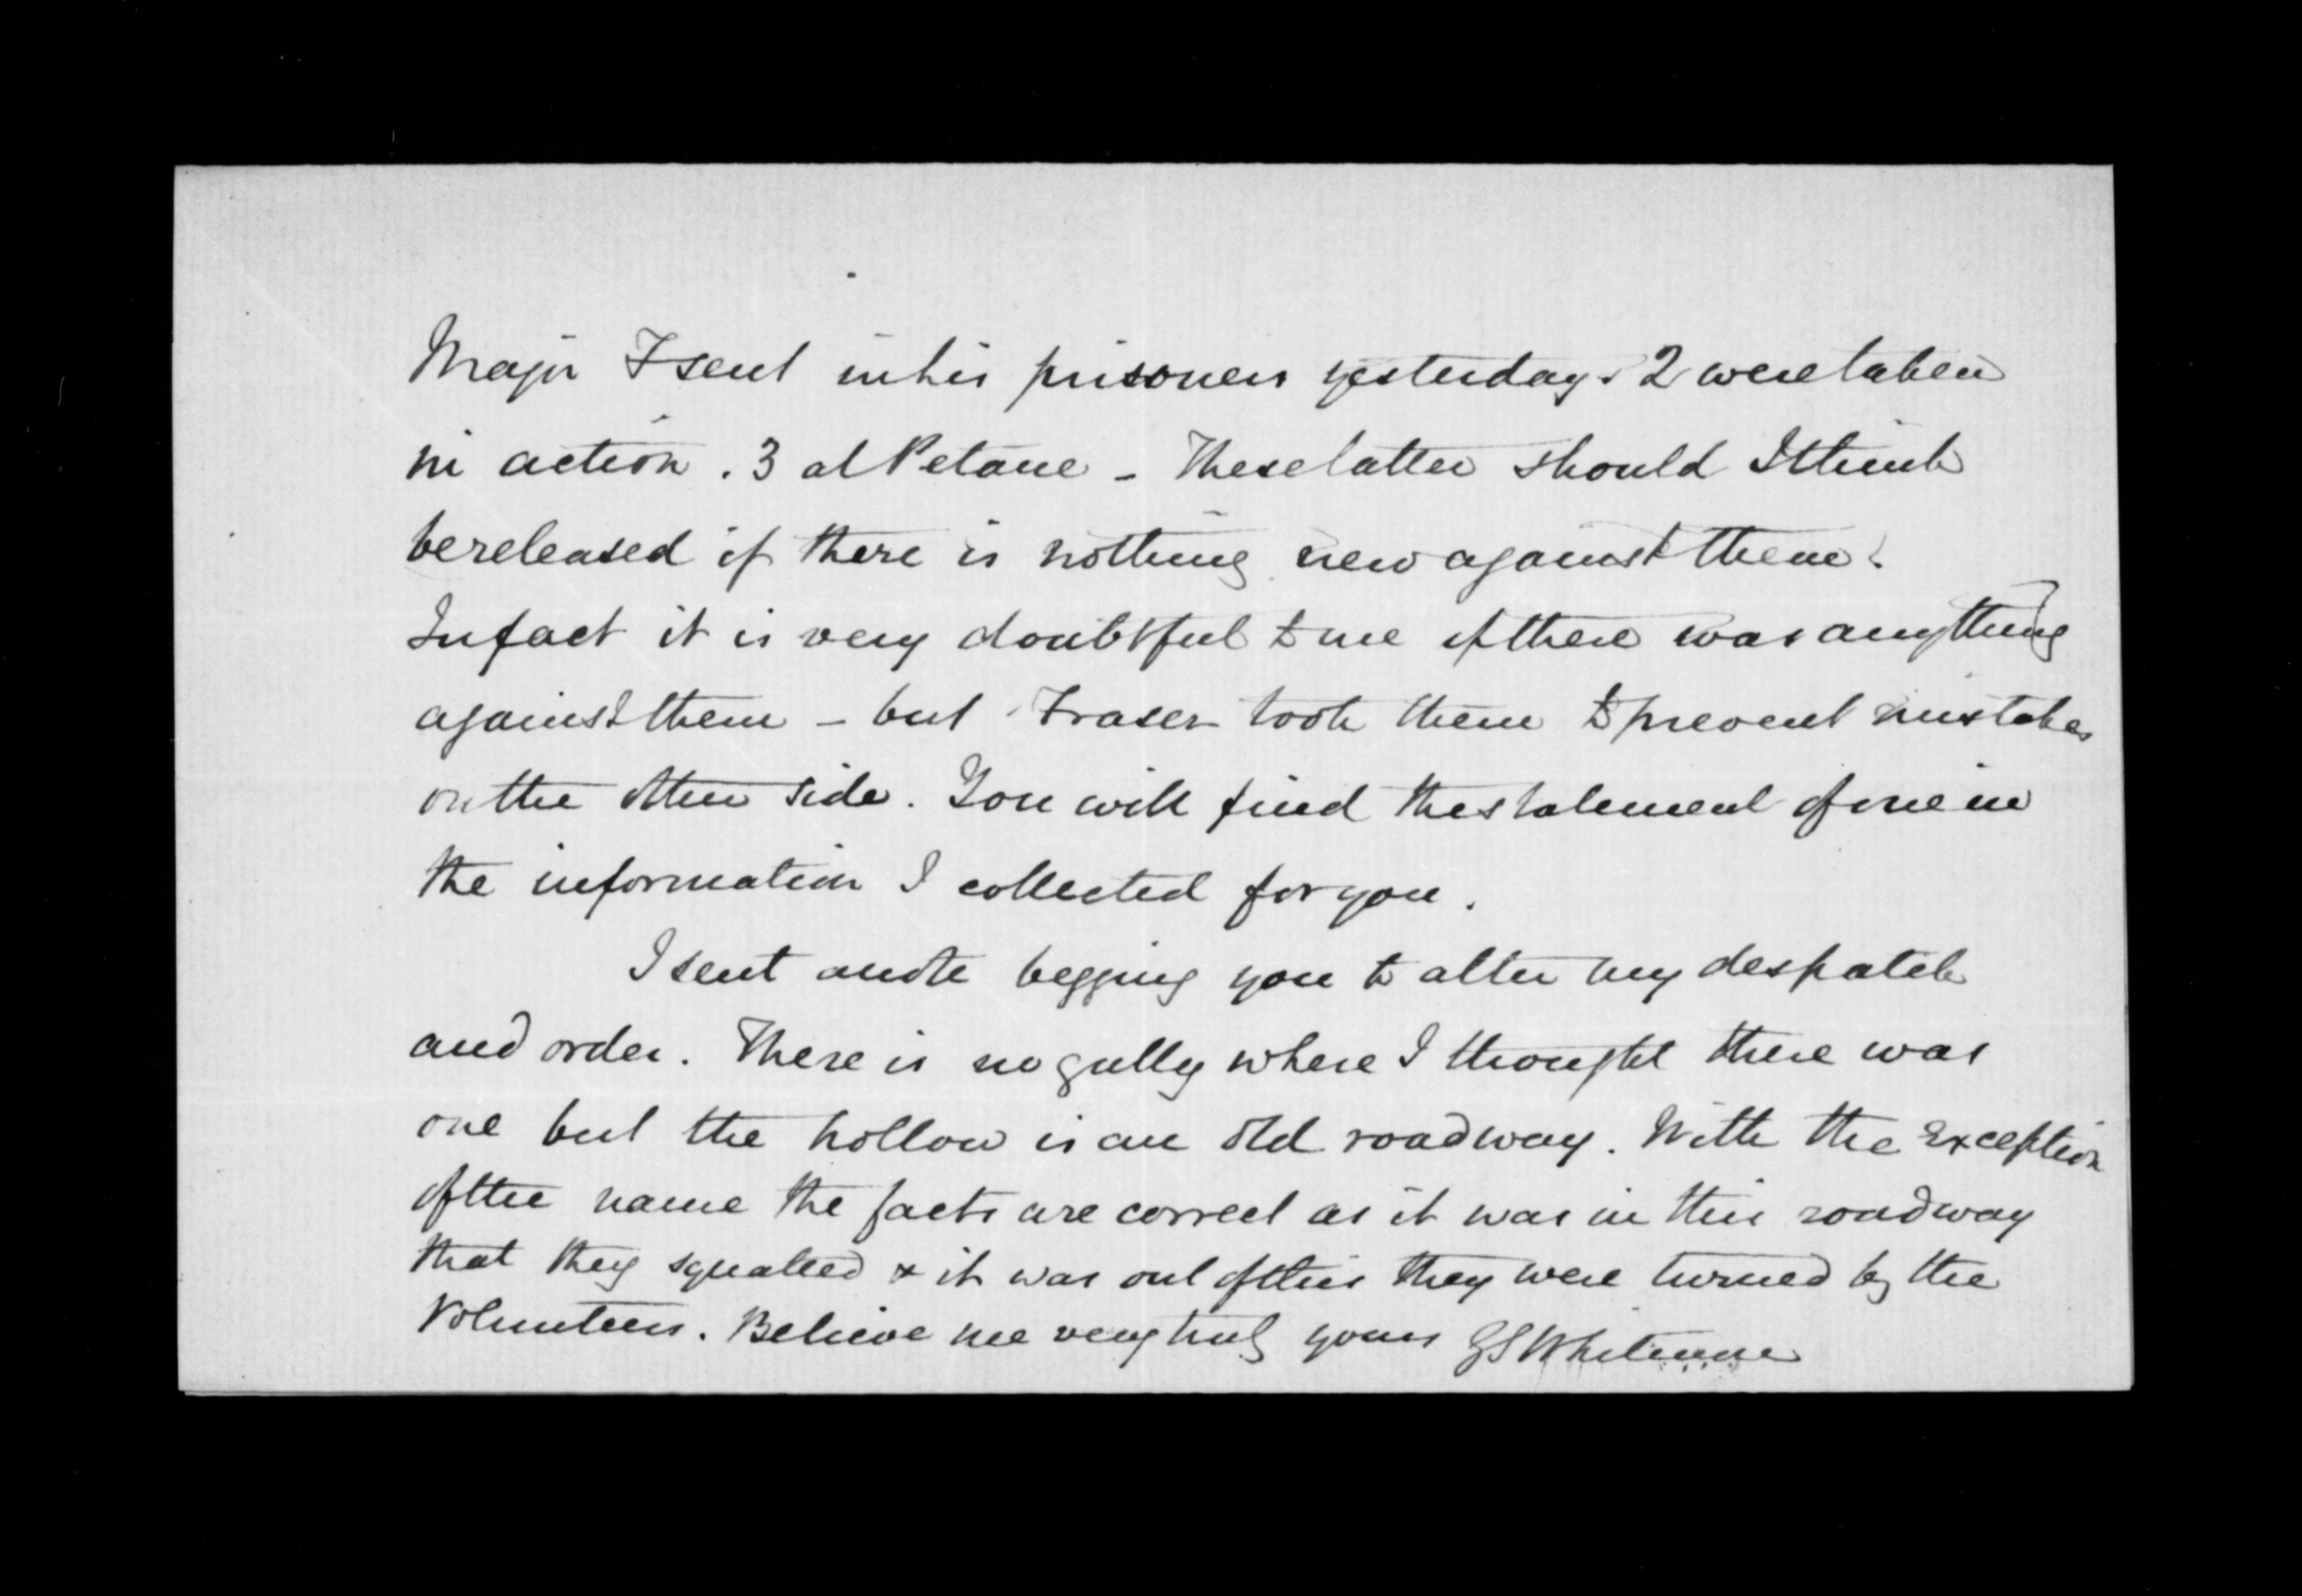 Major F sent in his prisoners yesterday. 2 were taken
in action. 3 at Petane - These latter should I think
be released if there is nothing new against them.
In fact it is very doubtful to me if there was anything
against them - but Fraser took them to prevent mistakes
on the other side. You will find the statement of one in
the information I collected for you.
I sent a note begging you to alter my despatch
and order. There is no gully where I thought there was
one but the hollow is an old roadway. With the exception
of the name the facts are correct as it was in this roadway
that they squatted & it was out of this they were turned by the
Volunteers. Believe me very truly yours GS Whitmore